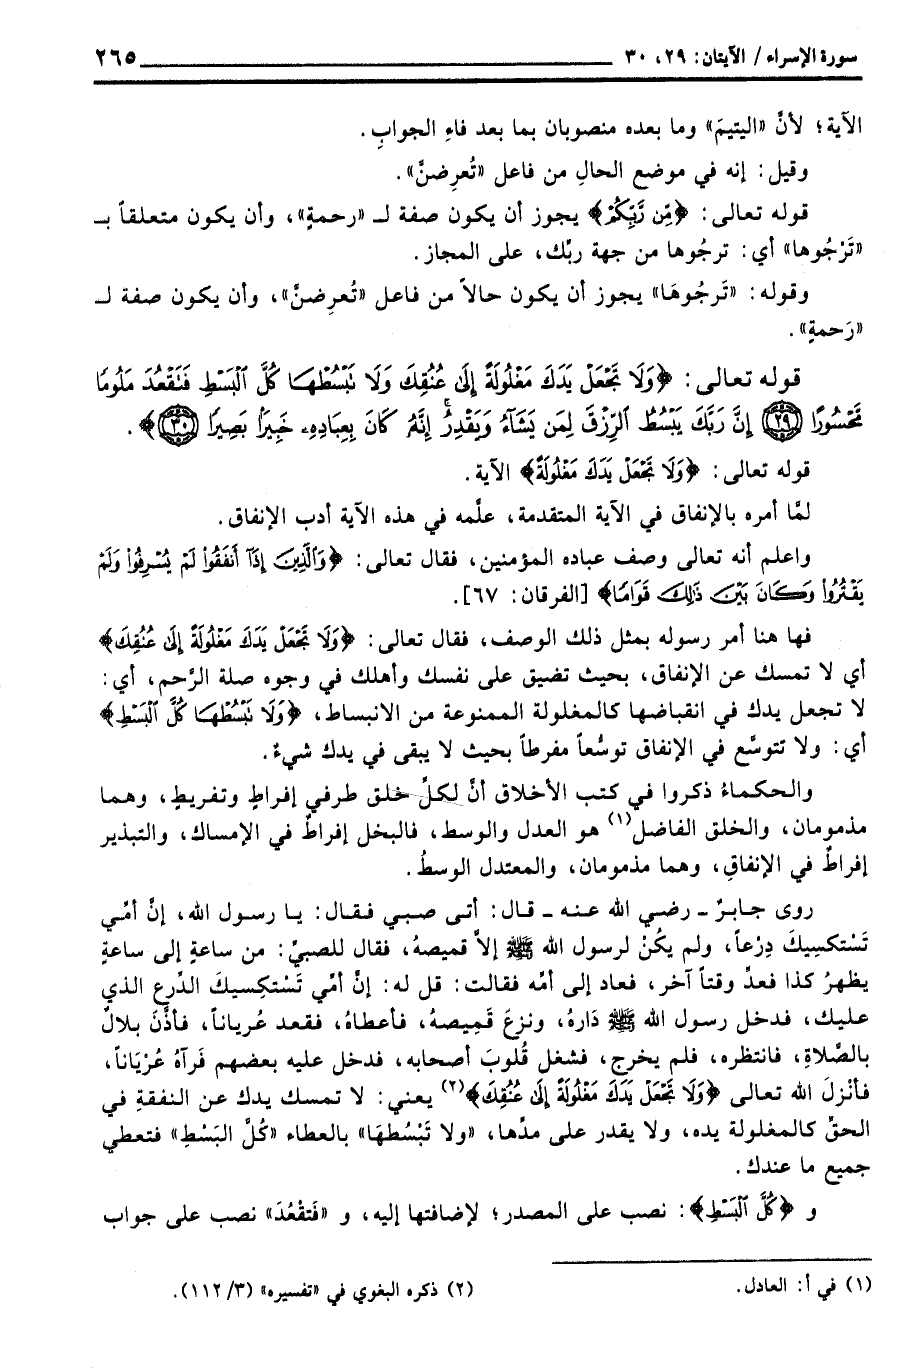 سورة الإسراء / الآيتان: ٢٩، ٣٠ ٢٦٥
الآية؛ لأنَّ «اليتيمَ» وما بعده منصوبان بما بعد فاءِ الجوابِ.
وقيل: إنه في موضع الحالِ من فاعل «تُعرِضنَّ».
قوله تعالى: ﴿مِّن رَّبِّكُمْ﴾ يجوز أن يكون صفة لـ «رحمةٍ»، وأن يكون متعلقاً بـ
«تَرْجُوها» أي: ترجُوها من جهة ربِّك، على المجاز.
وقوله: «تَرجُوهَا» يجوز أن يكون حالاً من فاعل «تُعرِضنَّ»، وأن يكون صفة لـ
«رَحمةٍ».
قوله تعالى: ﴿وَلَا تَجْعَلْ يَدَكَ مَغْلُولَةً إِلَىٰ عُنُقِكَ وَلَا تَبْسُطْهَا كُلَّ الْبَسْطِ فَتَقْعُدَ مَلُومًا
مَّحْسُورًا ﴿٢٩﴾ إِنَّ رَبَّكَ يَبْسُطُ الرِّزْقَ لِمَن يَشَاءُ وَيَقْدِرُ ۚ إِنَّهُ كَانَ بِعِبَادِهِ خَبِيرًا بَصِيرًا ﴿٣٠﴾﴾.
قوله تعالى: ﴿وَلَا تَجْعَلْ يَدَكَ مَغْلُولَةً﴾ الآية.
لمَّا أمره بالإنفاق في الآية المتقدمة، علَّمه في هذه الآية أدب الإنفاق.
واعلم أنه تعالى وصف عباده المؤمنين، فقال تعالى: ﴿وَالَّذِينَ إِذَا أَنفَقُوا لَمْ يُسْرِفُوا وَلَمْ
يَقْتُرُوا وَكَانَ بَيْنَ ذَٰلِكَ قَوَامًا﴾ [الفرقان: ٦٧].
فها هنا أمر رسوله بمثل ذلك الوصف، فقال تعالى: ﴿وَلَا تَجْعَلْ يَدَكَ مَغْلُولَةً إِلَىٰ عُنُقِكَ﴾
أي لا تمسك عن الإنفاق، بحيث تضيق على نفسك وأهلك في وجوه صلة الرَّحم، أي:
لا تجعل يدك في انقباضها كالمغلولة الممنوعة من الانبساط، ﴿وَلَا تَبْسُطْهَا كُلَّ الْبَسْطِ﴾
أي: ولا تتوسَّع في الإنفاق توسُّعاً مفرطاً بحيث لا يبقى في يدك شيءٌ.
والحكماءُ ذكروا في كتب الأخلاق أنَّ لكلِّ خلق طرفي إفراطٍ وتفريطٍ، وهما
مذمومان، والخلق الفاضل(١) هو العدل والوسط، فالبخل إفراطٌ في الإمساك، والتبذير
إفراطٌ في الإنفاقِ، وهما مذمومان، والمعتدل الوسطُ.
روى جابرٌ ـ رضي الله عنه ـ قال: أتى صبي فقال: يا رسول الله، إنَّ أمِّي
تَسْتكسِيكَ دِرْعاً، ولم يكُنْ لرسول الله ﷺ إلاَّ قميصهُ، فقال للصبيِّ: من ساعةٍ إلى ساعةٍ
يظهرُ كذا فعدْ وقتاً آخر، فعاد إلى أمِّه فقالت: قل له: إنَّ أمِّي تَسْتكِسيكَ الدِّرع الذي
عليك، فدخل رسول الله ﷺ دَارهُ، ونزعَ قَمِيصهُ، فأعطاهُ، فقعد عُرياناً، فأذَّنَ بلالٌ
بالصَّلاةِ، فانتظره، فلم يخرج، فشغل قُلوبَ أصحابه، فدخل عليه بعضهم فَرآهُ عُرْيَاناً،
فأنْزلَ الله تعالى ﴿وَلَا تَجْعَلْ يَدَكَ مَغْلُولَةً إِلَىٰ عُنُقِكَ﴾(٢) يعني: لا تمسك يدك عن النفقةِ في
الحقِّ كالمغلولة يده، ولا يقدر على مدِّها، «ولا تَبْسُطهَا» بالعطاء «كُلَّ البَسْطِ» فتعطي
جميع ما عندك.
و ﴿كُلَّ الْبَسْطِ﴾: نصب على المصدر؛ لإضافتها إليه، و «فَتقْعُدَ» نصب على جواب
(١) في أ: العادل. (٢) ذكره البغوي في «تفسيره» (٣/ ١١٢).